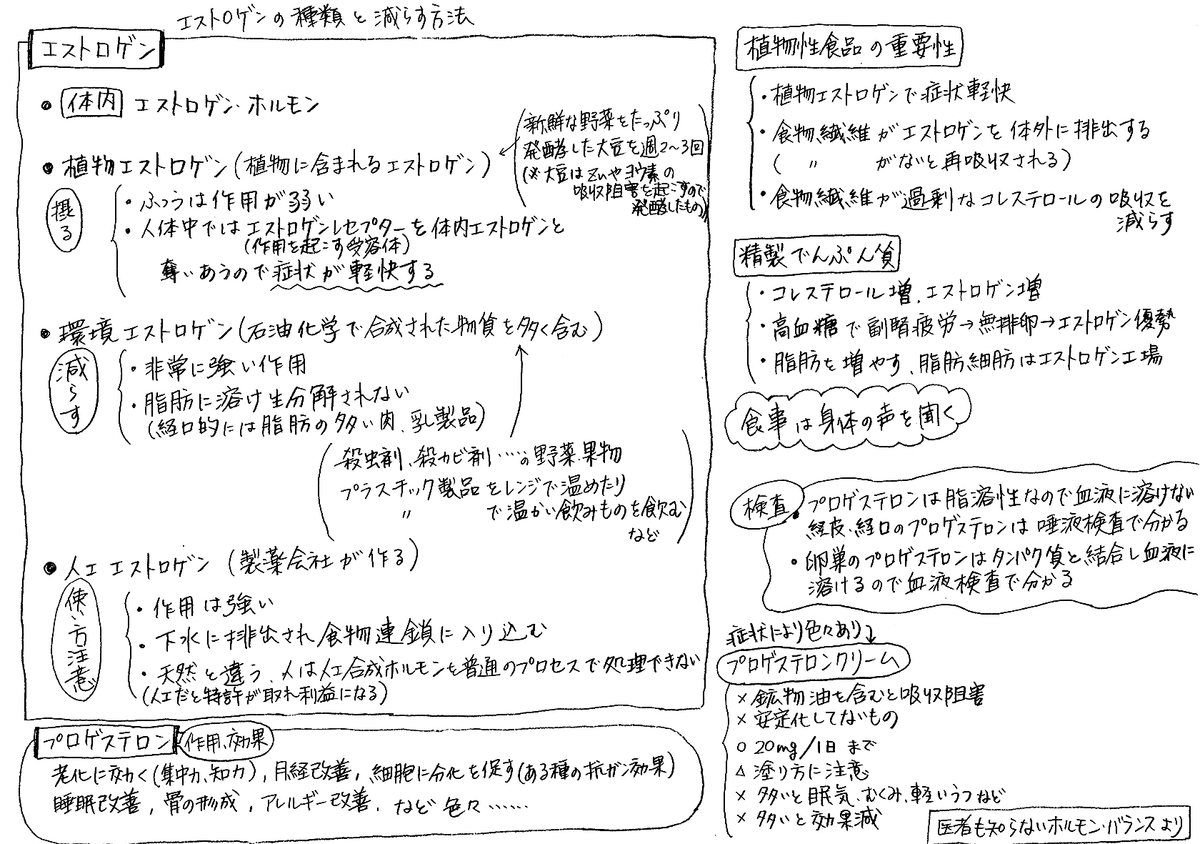 エストロゲンの種類と減らす方法
エストロゲン
・体内 エストロゲン・ホルモン
・植物エストロゲン(植物に含まれるエストロゲン)
新鮮な野菜をたっぷり
発酵した大豆を週2〜3回
(※大豆はZnやヨウ素の
吸収阻害を起こすので
発酵したもの)
摂る
・ふつうは作用が弱い
・人体中ではエストロゲンレセプターを体内エストロゲンと
(作用を起こす受容体)
奪いあうので症状が軽快する
・環境エストロゲン(石油化学で合成された物質を多く含む)
減らす
・非常に強い作用
・脂肪に溶け生分解されない
(経口的には脂肪の多い肉、乳製品)
殺虫剤、殺カビ剤……の野菜・果物
プラスチック製品をレンジで温めたり
〃 で温かい飲みものを飲む
など
・人工エストロゲン(製薬会社が作る)
使い方注意
・作用は強い
・下水に排出され食物連鎖に入り込む
・天然と違う、人は人工合成ホルモンを普通のプロセスで処理できない
(人工だと特許が取れ利益になる)
プロゲステロン 作用、効果
老化に効く(集中力、知力)、月経改善、細胞に分化を促す(ある種の抗ガン効果)
睡眠改善、骨の形成、アレルギー改善、など色々……
植物性食品の重要性
・植物エストロゲンで症状軽快
・食物繊維がエストロゲンを体外に排出する
( 〃 がないと再吸収される)
・食物繊維が過剰なコレステロールの吸収を
減らす
精製でんぷん質
・コレステロール増、エストロゲン増
・高血糖で副腎疲労→無排卵→エストロゲン優勢
・脂肪を増やす、脂肪細胞はエストロゲン工場
食事は身体の声を聞く
検査
・プロゲステロンは脂溶性なので血液に溶けない
経皮、経口のプロゲステロンは唾液検査で分かる
・卵巣のプロゲステロンはタンパク質と結合し血液に
溶けるので血液検査で分かる
症状により色々あり↓
プロゲステロンクリーム
× 鉱物油を含むと吸収阻害
× 安定化してないもの
○ 20mg/1日まで
△ 塗り方に注意
× 多いと眠気、むくみ、軽いうつなど
× 多いと効果減
医者も知らないホルモン・バランスより